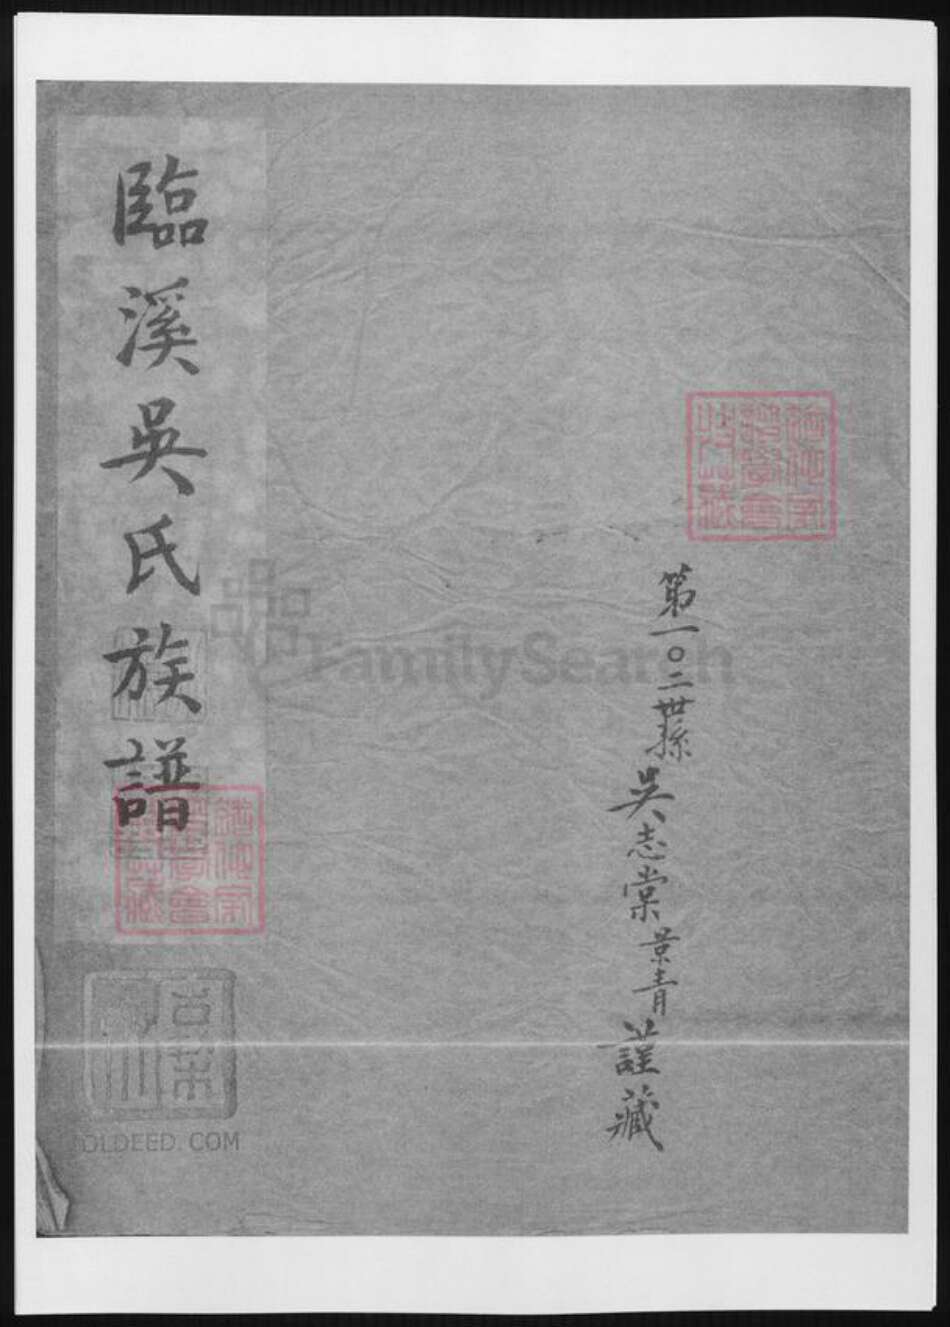 第一〇二世孫吳志棠景青謹藏
臨溪吳氏族譜
FamilySearch
OLDEED.COM